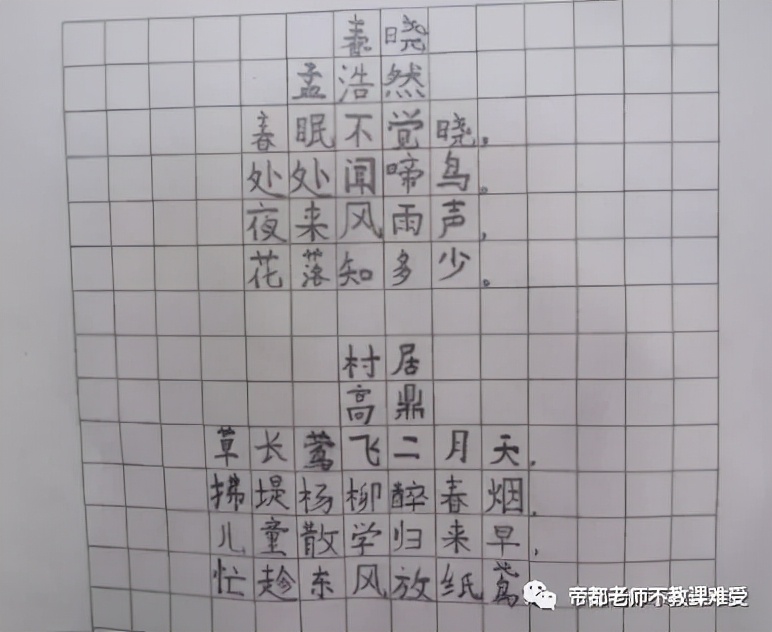 春晓
孟浩然
春眠不觉晓，
处处闻啼鸟。
夜来风雨声，
花落知多少。
村居
高鼎
草长莺飞二月天，
拂堤杨柳醉春烟。
儿童散学归来早，
忙趁东风放纸鸢
帝都老师不教课难受